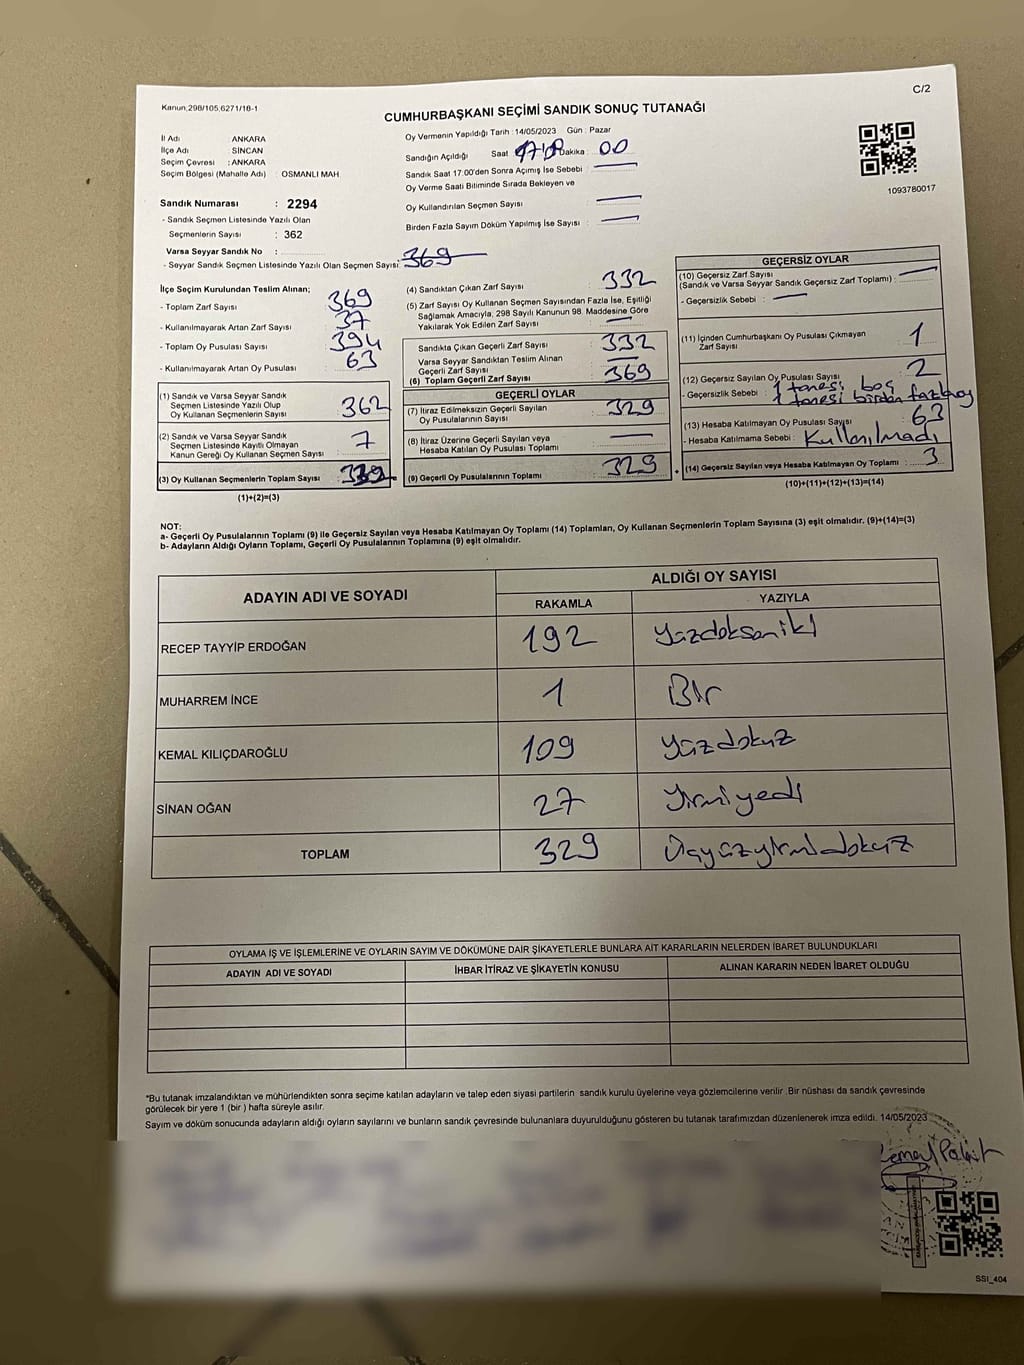 Kanun,298/105,6271/16-1
C/2
CUMHURBAŞKANI SEÇİMİ SANDIK SONUÇ TUTANAĞI
İl Adı : ANKARA
İlçe Adı : SİNCAN
Seçim Çevresi : ANKARA
Seçim Bölgesi (Mahalle Adı) : OSMANLI MAH
Sandık Numarası : 2294
- Sandık Seçmen Listesinde Yazılı Olan
Seçmenlerin Sayısı : 362
Varsa Seyyar Sandık No :
- Seyyar Sandık Seçmen Listesinde Yazılı Olan Seçmen Sayısı: 369
Oy Vermenin Yapıldığı Tarih : 14/05/2023 Gün : Pazar
Sandığın Açıldığı Saat Dakika : 00
Sandık Saat 17:00'den Sonra Açımış İse Sebebi :
Oy Verme Saati Bitiminde Sırada Bekleyen ve
Oy Kullandırılan Seçmen Sayısı :
Birden Fazla Sayım Döküm Yapılmış İse Sayısı :
1093780017
İlçe Seçim Kurulundan Teslim Alınan;
- Toplam Zarf Sayısı : 369
- Kullanılmayarak Artan Zarf Sayısı : 37
- Toplam Oy Pusulası Sayısı : 394
- Kullanılmayarak Artan Oy Pusulası : 63
(1) Sandık ve Varsa Seyyar Sandık
Seçmen Listesinde Yazılı Olup
Oy Kullanan Seçmenlerin Sayısı : 362
(2) Sandık ve Varsa Seyyar Sandık
Seçmen Listesinde Kayıtlı Olmayan
Kanun Gereği Oy Kullanan Seçmen Sayısı : 7
(3) Oy Kullanan Seçmenlerin Toplam Sayısı :
(1)+(2)=(3)
(4) Sandıktan Çıkan Zarf Sayısı : 332
(5) Zarf Sayısı Oy Kullanan Seçmen Sayısından Fazla İse, Eşitliği
Sağlamak Amacıyla, 298 Sayılı Kanunun 98. Maddesine Göre
Yakılarak Yok Edilen Zarf Sayısı :
Sandıkta Çıkan Geçerli Zarf Sayısı : 332
Varsa Seyyar Sandıktan Teslim Alınan
Geçerli Zarf Sayısı :
(6) Toplam Geçerli Zarf Sayısı : 369
GEÇERLİ OYLAR
(7) İtiraz Edilmeksizin Geçerli Sayılan
Oy Pusulalarının Sayısı : 329
(8) İtiraz Üzerine Geçerli Sayılan veya
Hesaba Katılan Oy Pusulası Toplamı :
(9) Geçerli Oy Pusulalarının Toplamı : 329
GEÇERSİZ OYLAR
(10) Geçersiz Zarf Sayısı
(Sandık ve Varsa Seyyar Sandık Geçersiz Zarf Toplamı) :
- Geçersizlik Sebebi :
(11) İçinden Cumhurbaşkanı Oy Pusulası Çıkmayan
Zarf Sayısı : 1
(12) Geçersiz Sayılan Oy Pusulası Sayısı : 2
- Geçersizlik Sebebi : 1 tanesi boş
1 tanesi birden fazla oy
(13) Hesaba Katılmayan Oy Pusulası Sayısı : 63
- Hesaba Katılmama Sebebi : Kullanılmadı
(14) Geçersiz Sayılan veya Hesaba Katılmayan Oy Toplamı : 3
(10)+(11)+(12)+(13)=(14)
NOT:
a- Geçerli Oy Pusulalarının Toplamı (9) ile Geçersiz Sayılan veya Hesaba Katılmayan Oy Toplamı (14) Toplamları, Oy Kullanan Seçmenlerin Toplam Sayısına (3) eşit olmalıdır. (9)+(14)=(3)
b- Adayların Aldığı Oyların Toplamı, Geçerli Oy Pusulalarının Toplamına (9) eşit olmalıdır.
ADAYIN ADI VE SOYADI
ALDIĞI OY SAYISI
RAKAMLA YAZIYLA
RECEP TAYYİP ERDOĞAN 192 yüzdoksaniki
MUHARREM İNCE 1 Bir
KEMAL KILIÇDAROĞLU 109 yüzdokuz
SİNAN OĞAN 27 yirmiyedi
TOPLAM 329 Üçyüzyirmidokuz
OYLAMA İŞ VE İŞLEMLERİNE VE OYLARIN SAYIM VE DÖKÜMÜNE DAİR ŞİKAYETLERLE BUNLARA AİT KARARLARIN NELERDEN İBARET BULUNDUKLARI
ADAYIN ADI VE SOYADI İHBAR İTİRAZ VE ŞİKAYETİN KONUSU ALINAN KARARIN NEDEN İBARET OLDUĞU
*Bu tutanak imzalandıktan ve mühürlendikten sonra seçime katılan adayların ve talep eden siyasi partilerin sandık kurulu üyelerine veya gözlemcilerine verilir .Bir nüshası da sandık çevresinde
görülecek bir yere 1 (bir ) hafta süreyle asılır.
Sayım ve döküm sonucunda adayların aldığı oyların sayılarını ve bunların sandık çevresinde bulunanlara duyurulduğunu gösteren bu tutanak tarafımızdan düzenlenerek imza edildi. 14/05/2023
SSI_404